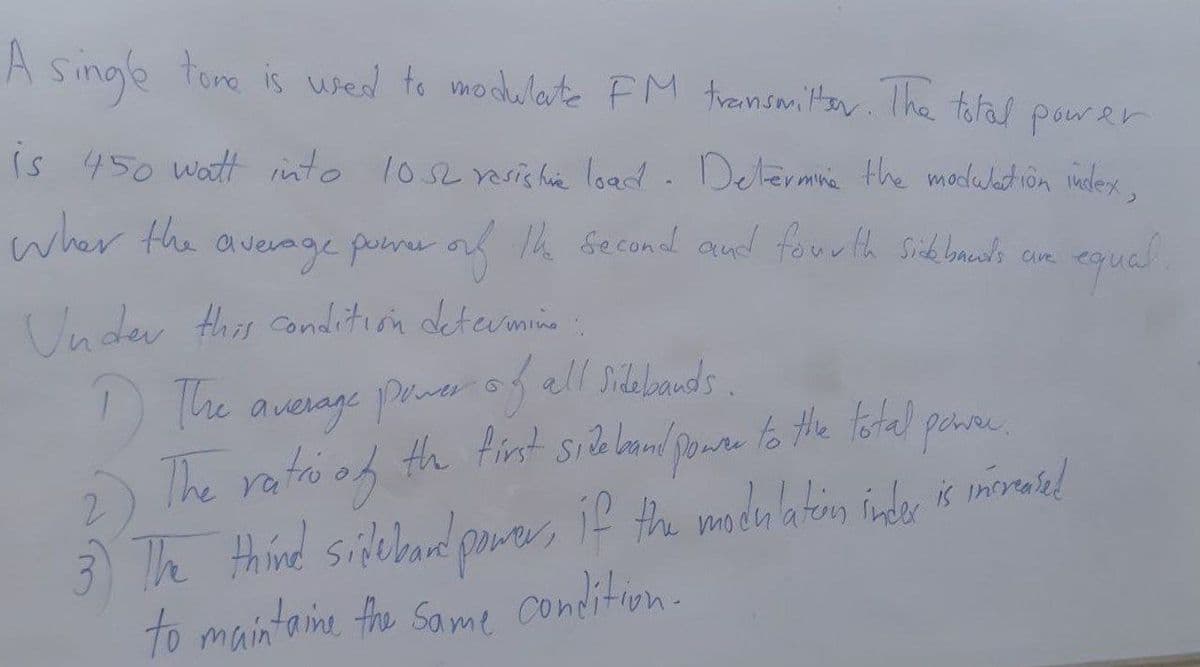 A single tone is used to modulate FM transmitter. The total power
is 450 watt into 10 Ω resistive load. Determine the modulation index,
when the average power of the second and fourth sidebands are equal.
Under this condition determine :
1) The average power of all sidebands.
2) The ratio of the first sideband power to the total power.
3) The third sideband power, if the modulation index is increased
to maintaine the same condition.